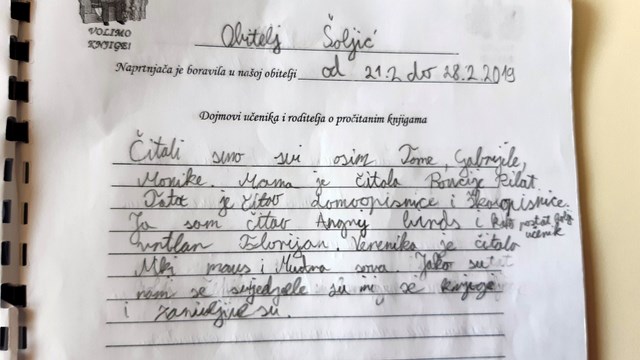 VOLIMO
KNJIGE!
Obitelj Šoljić
Naprtnjača je boravila u našoj obitelji od 21.2 do 28.2.2019
Dojmovi učenika i roditelja o pročitanim knjigama
Čitali smo svi osim Tome, Gabrijele,
Monike. Mama je čitala Poncije Pilat
Tata je čitao domoopisnice i
Ja sam čitao Angry birds i Kako postat bolji
učenik
Florijan. Veronika je čitala
Miki maus i Mudra sova. Jako su
nam se svjedjele su mi se knjige
i zanimljive su.